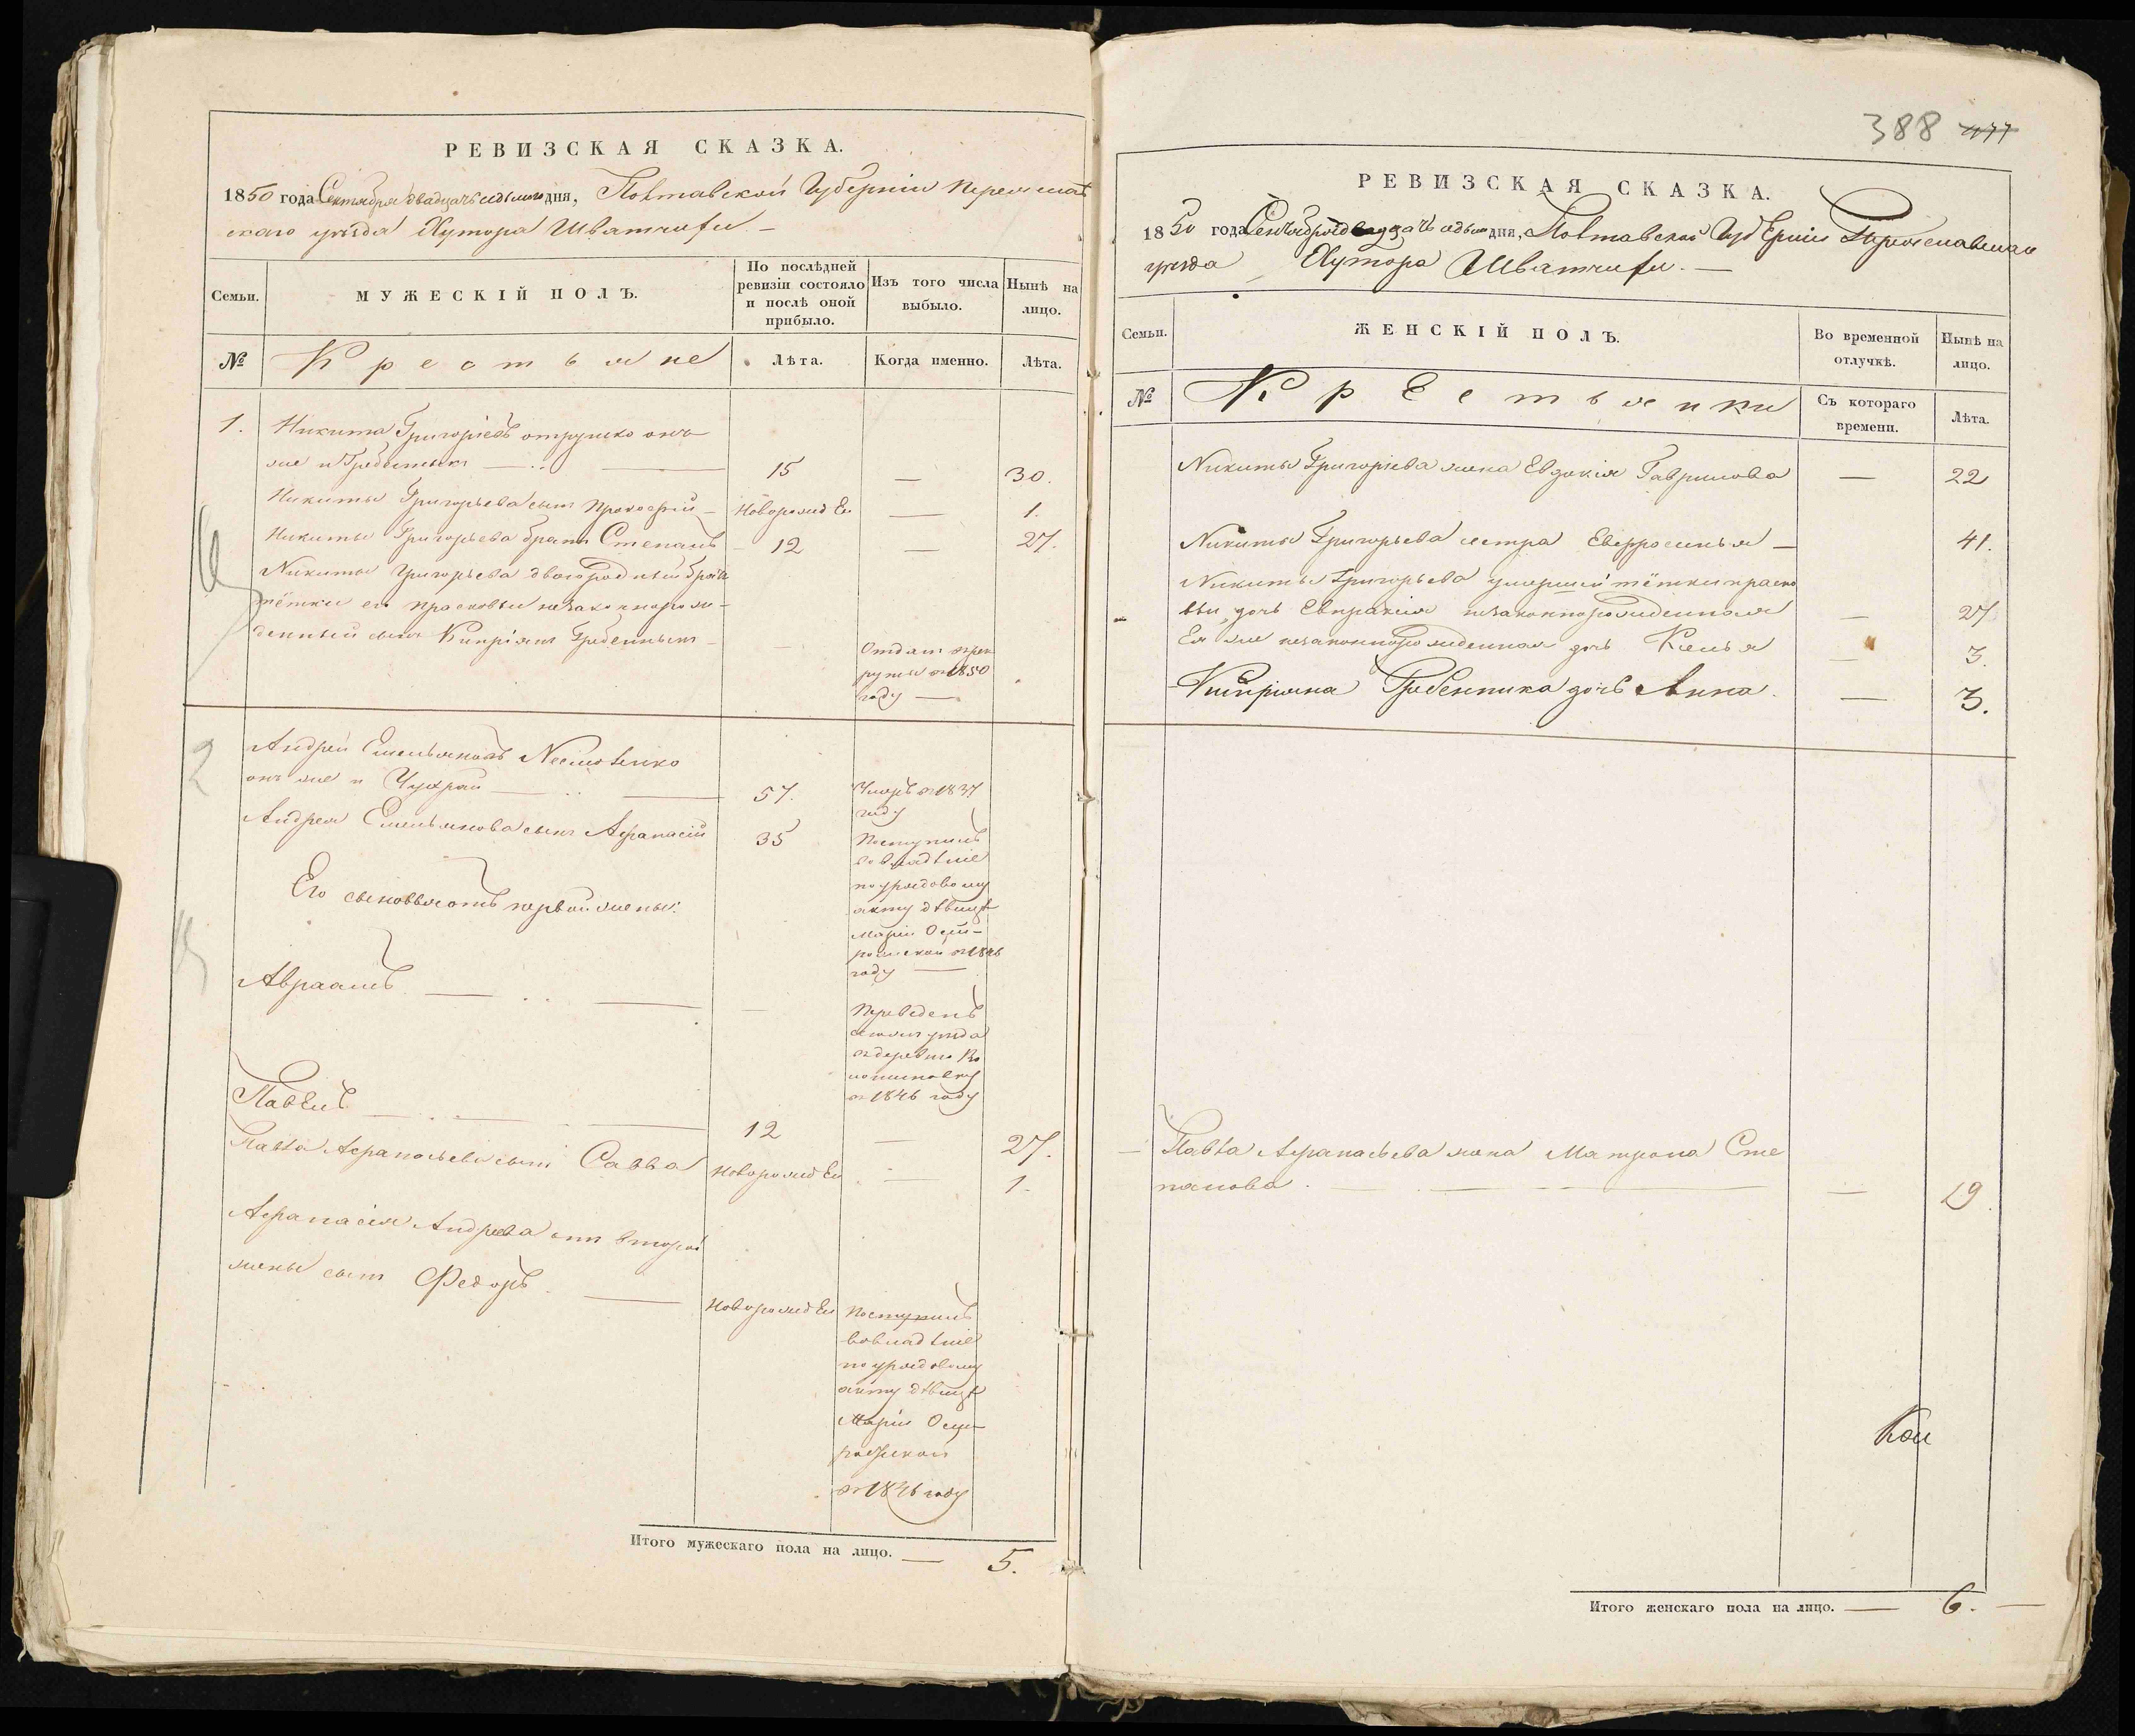 РЕВИЗСКАЯ СКАЗКА.
1850 года Сентября двадцать седьмого дня, Полтавской Губерніи Переяслав
скаго уѣзда Хутора
Семьи.
МУЖЕСКІЙ ПОЛЪ.
По послѣдней ревизіи состояло и послѣ оной прибыло.
Изъ того числа выбыло.
Нынѣ на лицо.
№
Крестьяне
Лѣта.
Когда именно.
Лѣта.
1.
Никита Григоріевъ онъ
же и Гребенникъ
15
—
30.
Никиты Григорьева сынъ Прокофій
Новорожден
—
1.
Никиты Григорьева братъ Степанъ
12
—
27.
Никиты Григорьева двоюродный братъ
тётки его Прасковьи незаконнорож-
денный сынъ Кипріянъ Гребенникъ
—
Отданъ в рек
руты в 1850
году —
2
Андрей Емельяновъ
онъ же и Чухрай
57.
Умеръ в 1837
году
Андрея Емельянова сынъ Афанасій
35
Поступилъ
во владѣніе
по урядовому
акту дѣвицѣ
Маріи
в 1846
году —
Его сыновья отъ первой жены:
Авраамъ
—
Переведенъ
уѣзда
в деревню
в 1846 году
Павелъ
12
—
27.
Павла Афанасьева сынъ Савва
Новорожден
—
1.
Афанасія Андреева отъ второй
жены сынъ Федоръ
Новорожден
Поступилъ
во владѣніе
по урядовому
акту дѣвицѣ
Маріи
в 1846 году
Итого мужескаго пола на лицо. — 5.
388 477
РЕВИЗСКАЯ СКАЗКА.
1850 года Сентября двадцать седьмо дня, Полтавской Губерніи Переяславскаго
уѣзда Хутора
Семьи.
ЖЕНСКІЙ ПОЛЪ.
Во временной отлучкѣ.
Нынѣ на лицо.
№
Крестьянки
Съ котораго времени.
Лѣта.
Никиты Григоріева жена Евдокія Гаврилова
—
22
Никиты Григорьева сестра Евфросинья —
41.
Никиты Григорьева умершей тётки Праско
вьи, дочь Евпраксія незаконнорожденная
—
27
Ея же незаконнорожденная дочь
—
3.
Кипріяна Гребенника дочь Анна.
—
3.
Павла Афанасьева жена Матрона Сте
панова.
—
29.
Итого женскаго пола на лицо. — 6. —